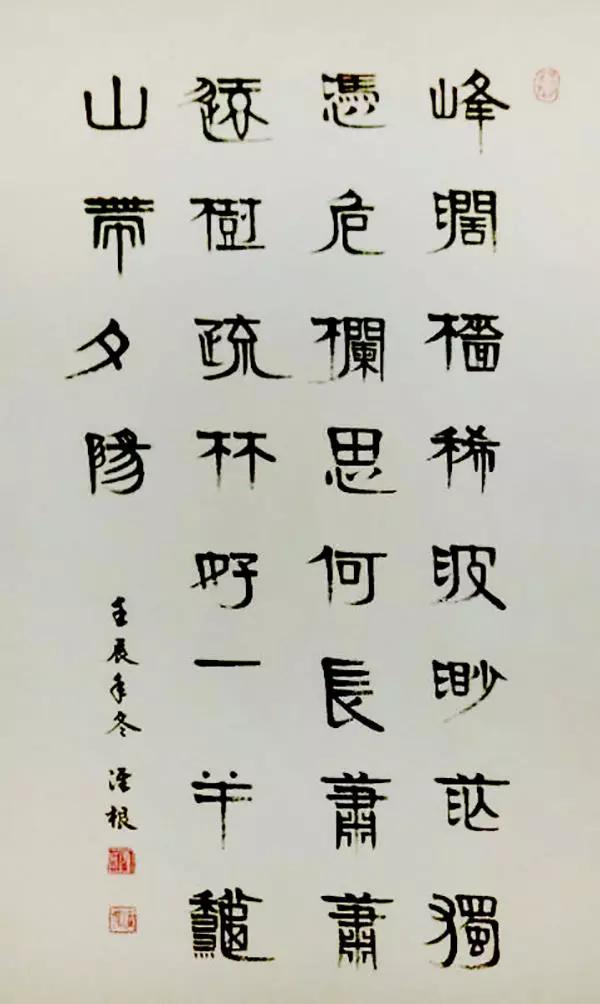 峰濶檣稀波渺茫獨
憑危欄思何長蕭蕭
遠樹疏林好一半龝
山帶夕陽
壬辰年冬 根